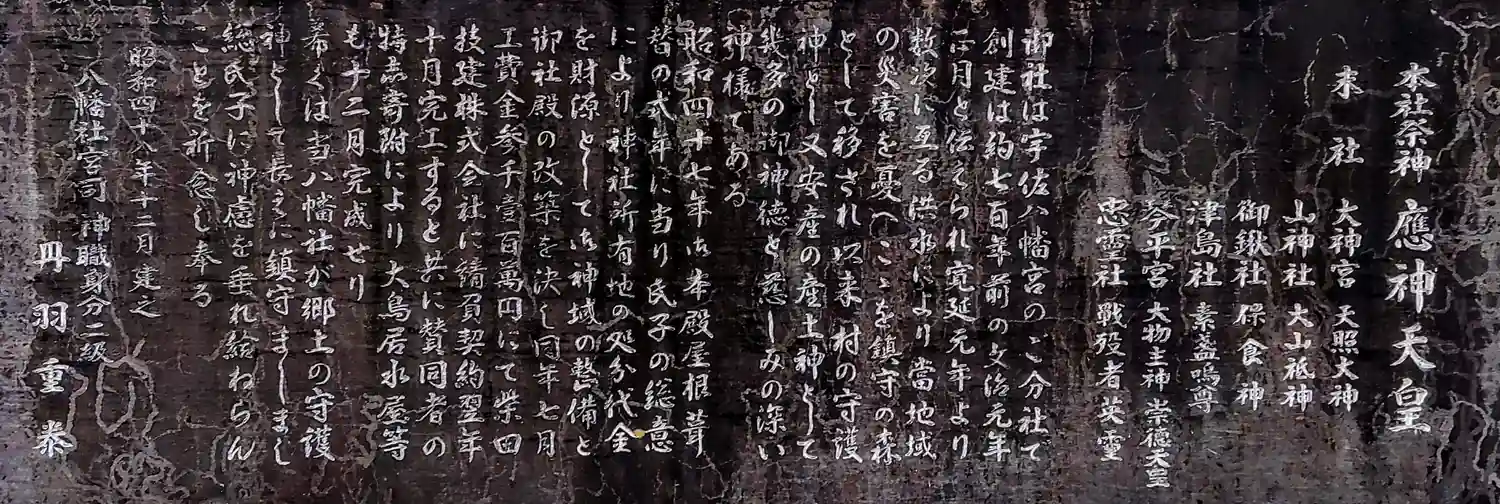 本社祭神 應神天皇
末社 大神宮 天照大神
山神社 大山祇神
御鍬社 保食神
津島社 素盞嗚尊
琴平宮 大物主神 崇徳天皇
忠霊社 戦歿者英霊
御社は宇佐八幡宮のご分社て
創建は約七百年前の文治元年
正月と伝えられ寛延元年より
数次に亙る洪水により當地域
の災害を憂へこゝを鎮守の森
として移され以来村の守護
神とし又安産の産土神として
幾多の御神徳と慈しみの深い
神様てある
昭和四十七年古本殿屋根葺
替の式年に当り氏子の総意
により神社所有地の処分代金
を財源として古神域の整備と
御社殿の改築を決し同年七月
工費金参千壹百萬円にて柴田
技建株式会社に請負契約翌年
十月完工すると共に賛同者の
特志寄附により大鳥居水屋等
も十二月完成せり
希くは当八幡社が郷土の守護
神として長えに鎮守ましまし
総氏子に神慮を垂れ給わらん
ことを祈念し奉る
昭和四十八年十二月建之
八幡社宮司 神職身分二級
丹羽重泰